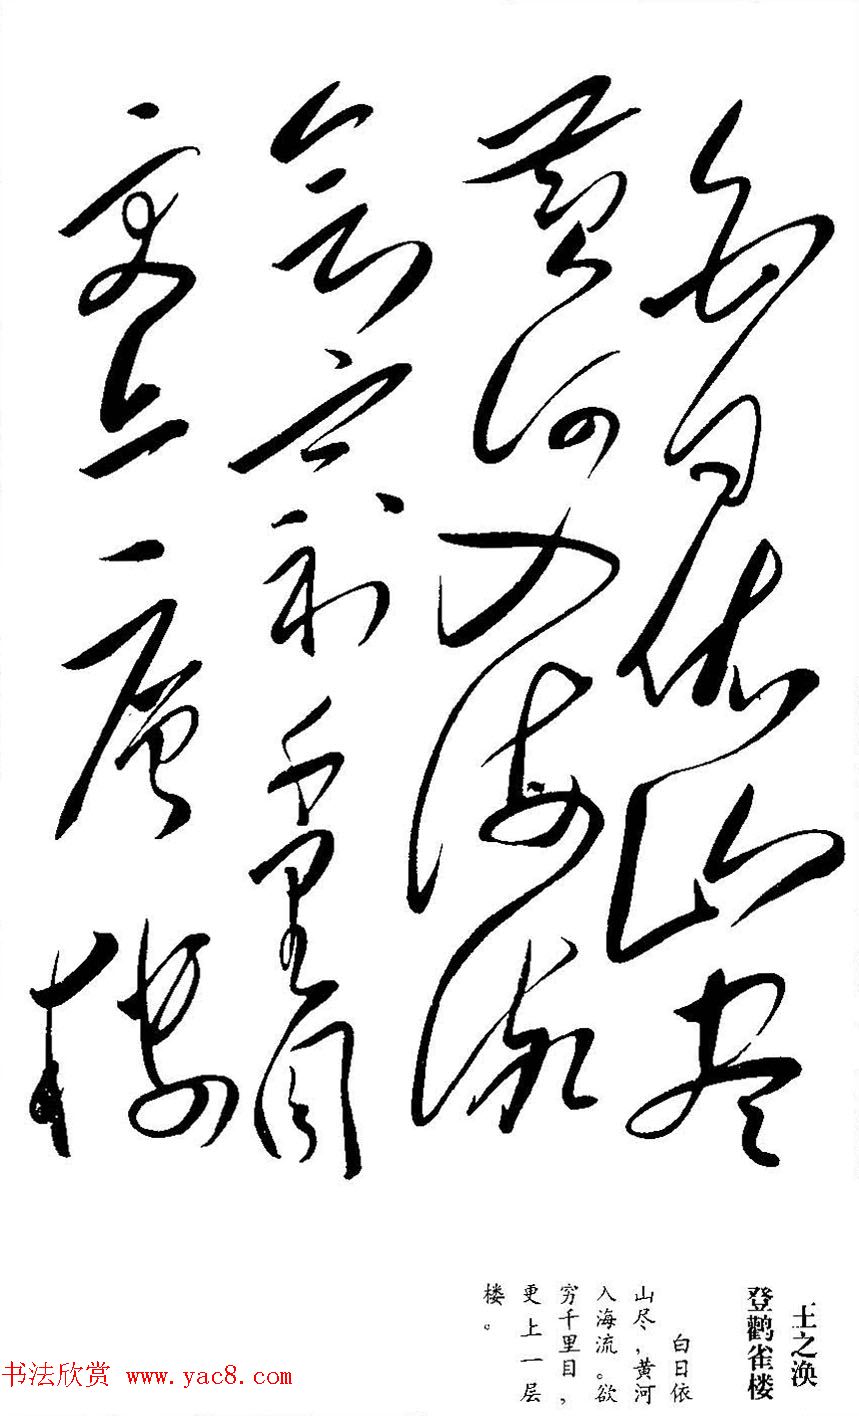 白日依山盡
黄河入海流
欲窮千里目
更上一層樓
王之涣
登鹳雀楼
白日依
山尽，黄河
入海流。欲
穷千里目，
更上一层
楼。
书法欣赏 www.yac8.com